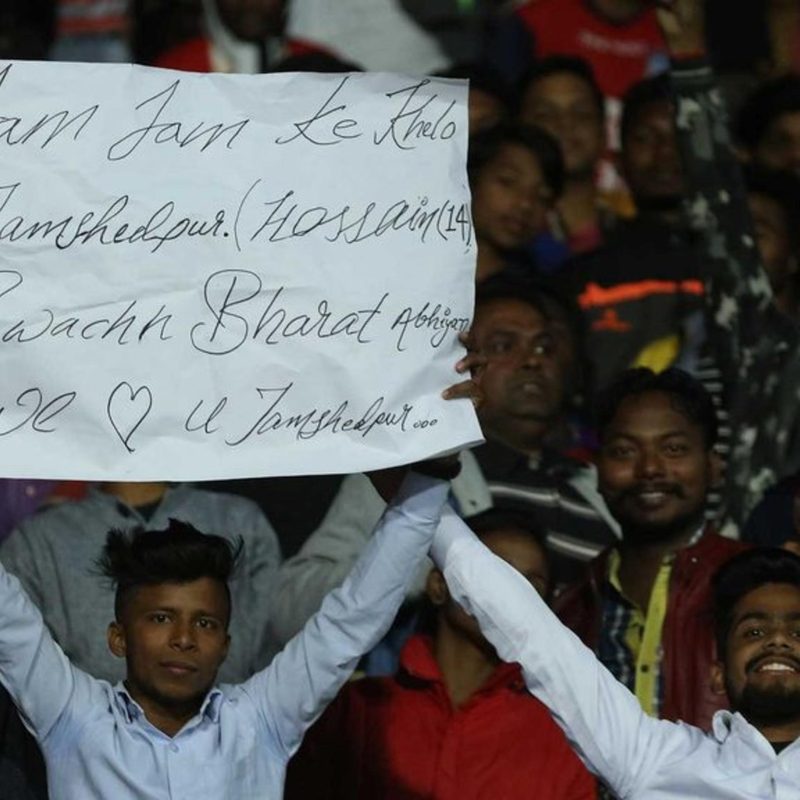 Jam Jam Ke Khelo
Jamshedpur. (Hossain (14)
Swachh Bharat Abhiyan
We ♡ U Jamshedpur...